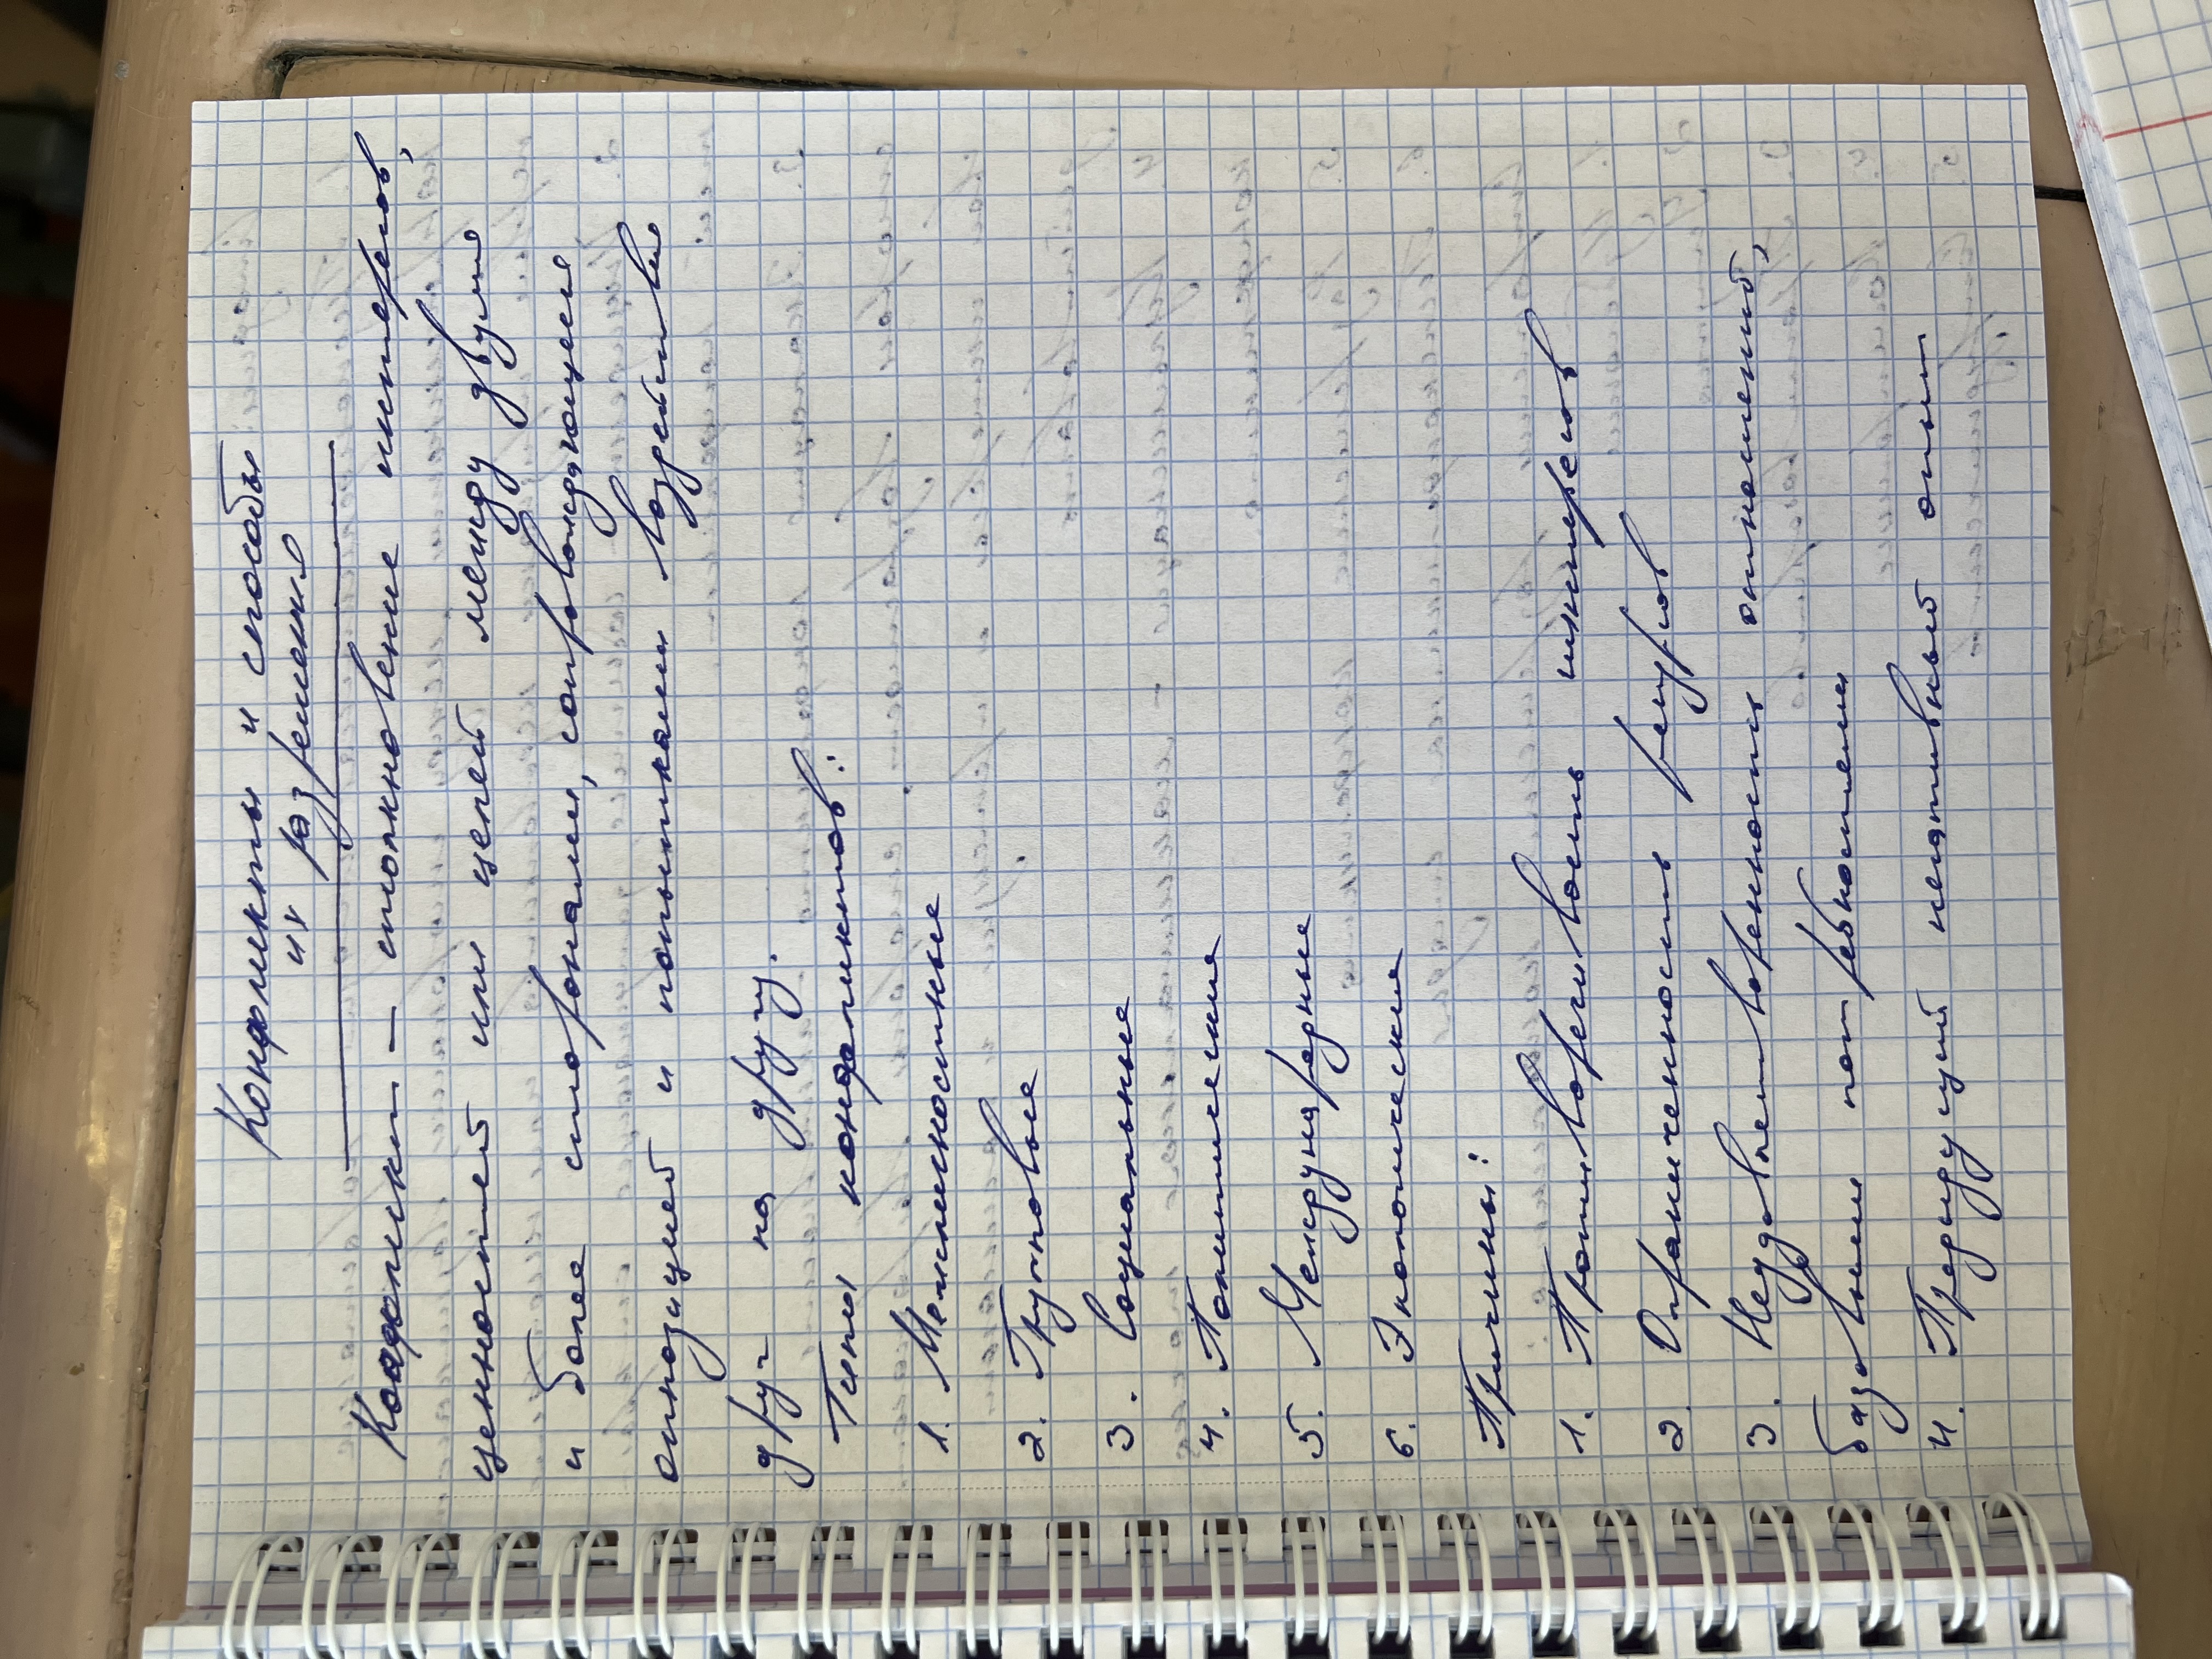 Конфликты и способы
их разрешения
Конфликт — столкновение интересов,
ценностей или целей между двумя
и более сторонами, сопровождающееся
оппозицией и попытками воздействия
друг на другу.
Типы конфликтов:
1. Межличностные
2. Групповые
3. Социальные
4. Политические
5. Международные
6. Экономические
Причины:
1. Противоречивость интересов
2. Ограниченность ресурсов
3. Недовлетворенность отношений,
базовыми потребностями
4. Предыдущий негативный опыт